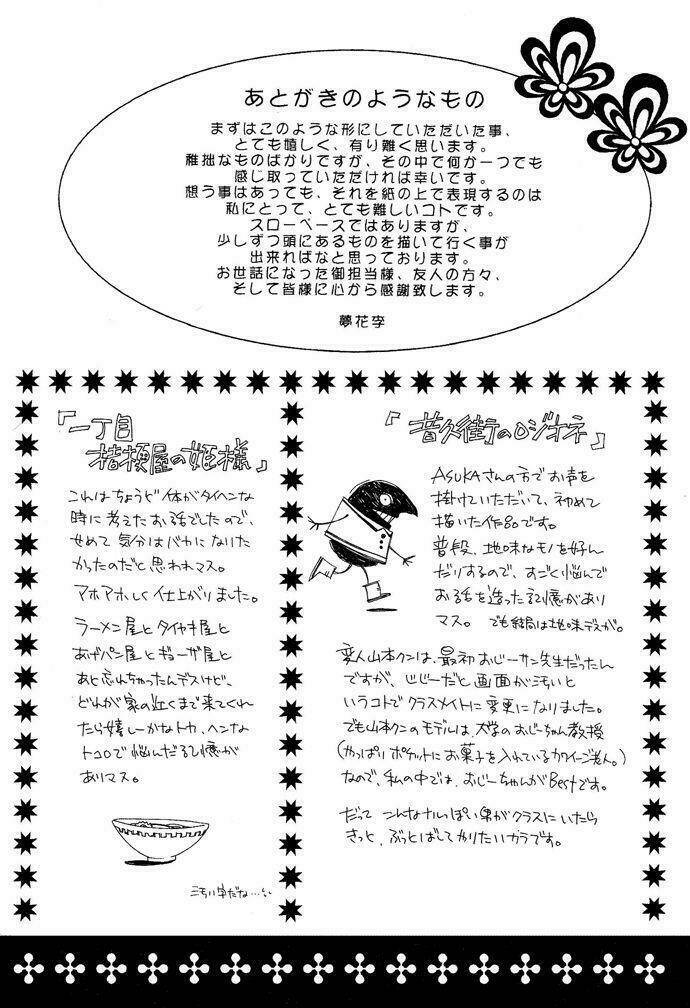 あとがきのようなもの
まずはこのような形にしていただいた事、
とても嬉しく、有り難く思います。
稚拙なものばかりですが、その中で何か一つでも
感じ取っていただければ幸いです。
想う事はあっても、それを紙の上で表現するのは
私にとって、とても難しいコトです。
スローペースではありますが、
少しずつ頭にあるものを描いて行く事が
出来ればなと思っております。
お世話になった御担当様、友人の方々、
そして皆様に心から感謝致します。
夢花李
『一丁目
桔梗屋の姫様』
これはちょうど体がタイヘンな
時に考えたお話でしたので、
せめて気分はバカになりた
かったのだと思われマス。
アホアホしく仕上がりました。
ラーメン屋とタイヤキ屋と
あげパン屋とギョーザ屋と
あと忘れちゃったんデスけど、
どれが家の近くまで来てくれ
たら嬉しーかなトカ、ヘンな
トコロで悩んだ記憶が
ありマス。
『音久街のロジオネ』
ASUKAさんの方でお声を
掛けていただいて、初めて
描いた作品です。
普段、地味なモノを好ん
だりするので、すごく悩んで
お話を造った記憶があり
マス。でも結局は地味デスが。
変人山本クンは、最初おじーサン先生だったん
ですが、じじーだと画面が汚いと
いうコトでクラスメイトに変更になりました。
でも山本クンのモデルは、大学のおじーちゃん教授
(やっぱりポケットにお菓子を入れているカワイーご老人。)
なので、私の中では、おじーちゃんがBestです。
だってこんなナルっぽい男がクラスにいたら
きっと、ぶっとばしてやりたいカラです。